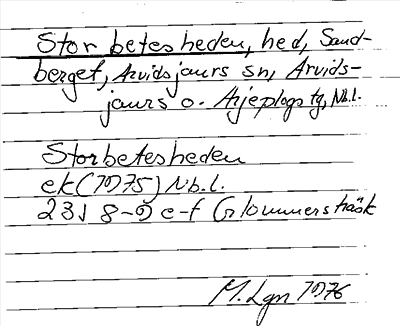 Storbetesheden, hed, Sand-
berget, Arvidsjaurs sn, Arvids-
jaurs o. Arjeplogs tg, Nb.l.
Storbetesheden
ek (1975) Nb.l.
23J 8-9 e-f Glommersträsk
M. Lgn 1976